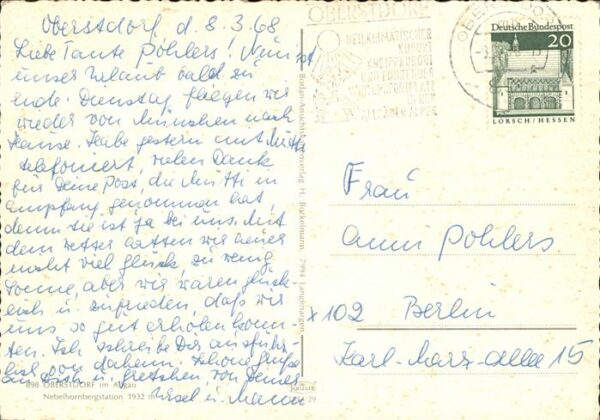 Oberstdorf d. 8.3.68
Liebe Tante Pohlers! Nun ist
unser Urlaub bald zu
ende. Dienstag fliegen wir
wieder von München nach
Hause. Habe gestern mit Mutti
telefoniert, vielen Dank
für Deine Post, die Mutti in
Empfang genommen hat,
denn sie ist ja bei uns. Mit
dem Wetter hatten wir heuer
nicht viel Glück, zu wenig
Sonne, aber wir waren glück-
lich u. zufrieden, daß wir
uns so gut erholen konn-
ten. Ich schreibe Dir ausführ-
lich von daheim. Schöne Grüße
an Dich u. Gretchen von Deiner
Ursel u.
898 OBERSTDORF im Allgäu
Nebelhornbergstation 1932 m
Bodan-Ansichtskartenverlag H. Bockelmann, 7994 Langenargen
OBERSTDORF
HEILKLIMATISCHER
KURORT
KNEIPPKURORT
UND FÜHRENDER
WINTERSPORTPLATZ
IN DEN
ALLGÄUER ALPEN
Deutsche Bundespost
20
LORSCH/HESSEN
Frau
Anni Pohlers
X102 Berlin
Karl-Marx-Allee 15